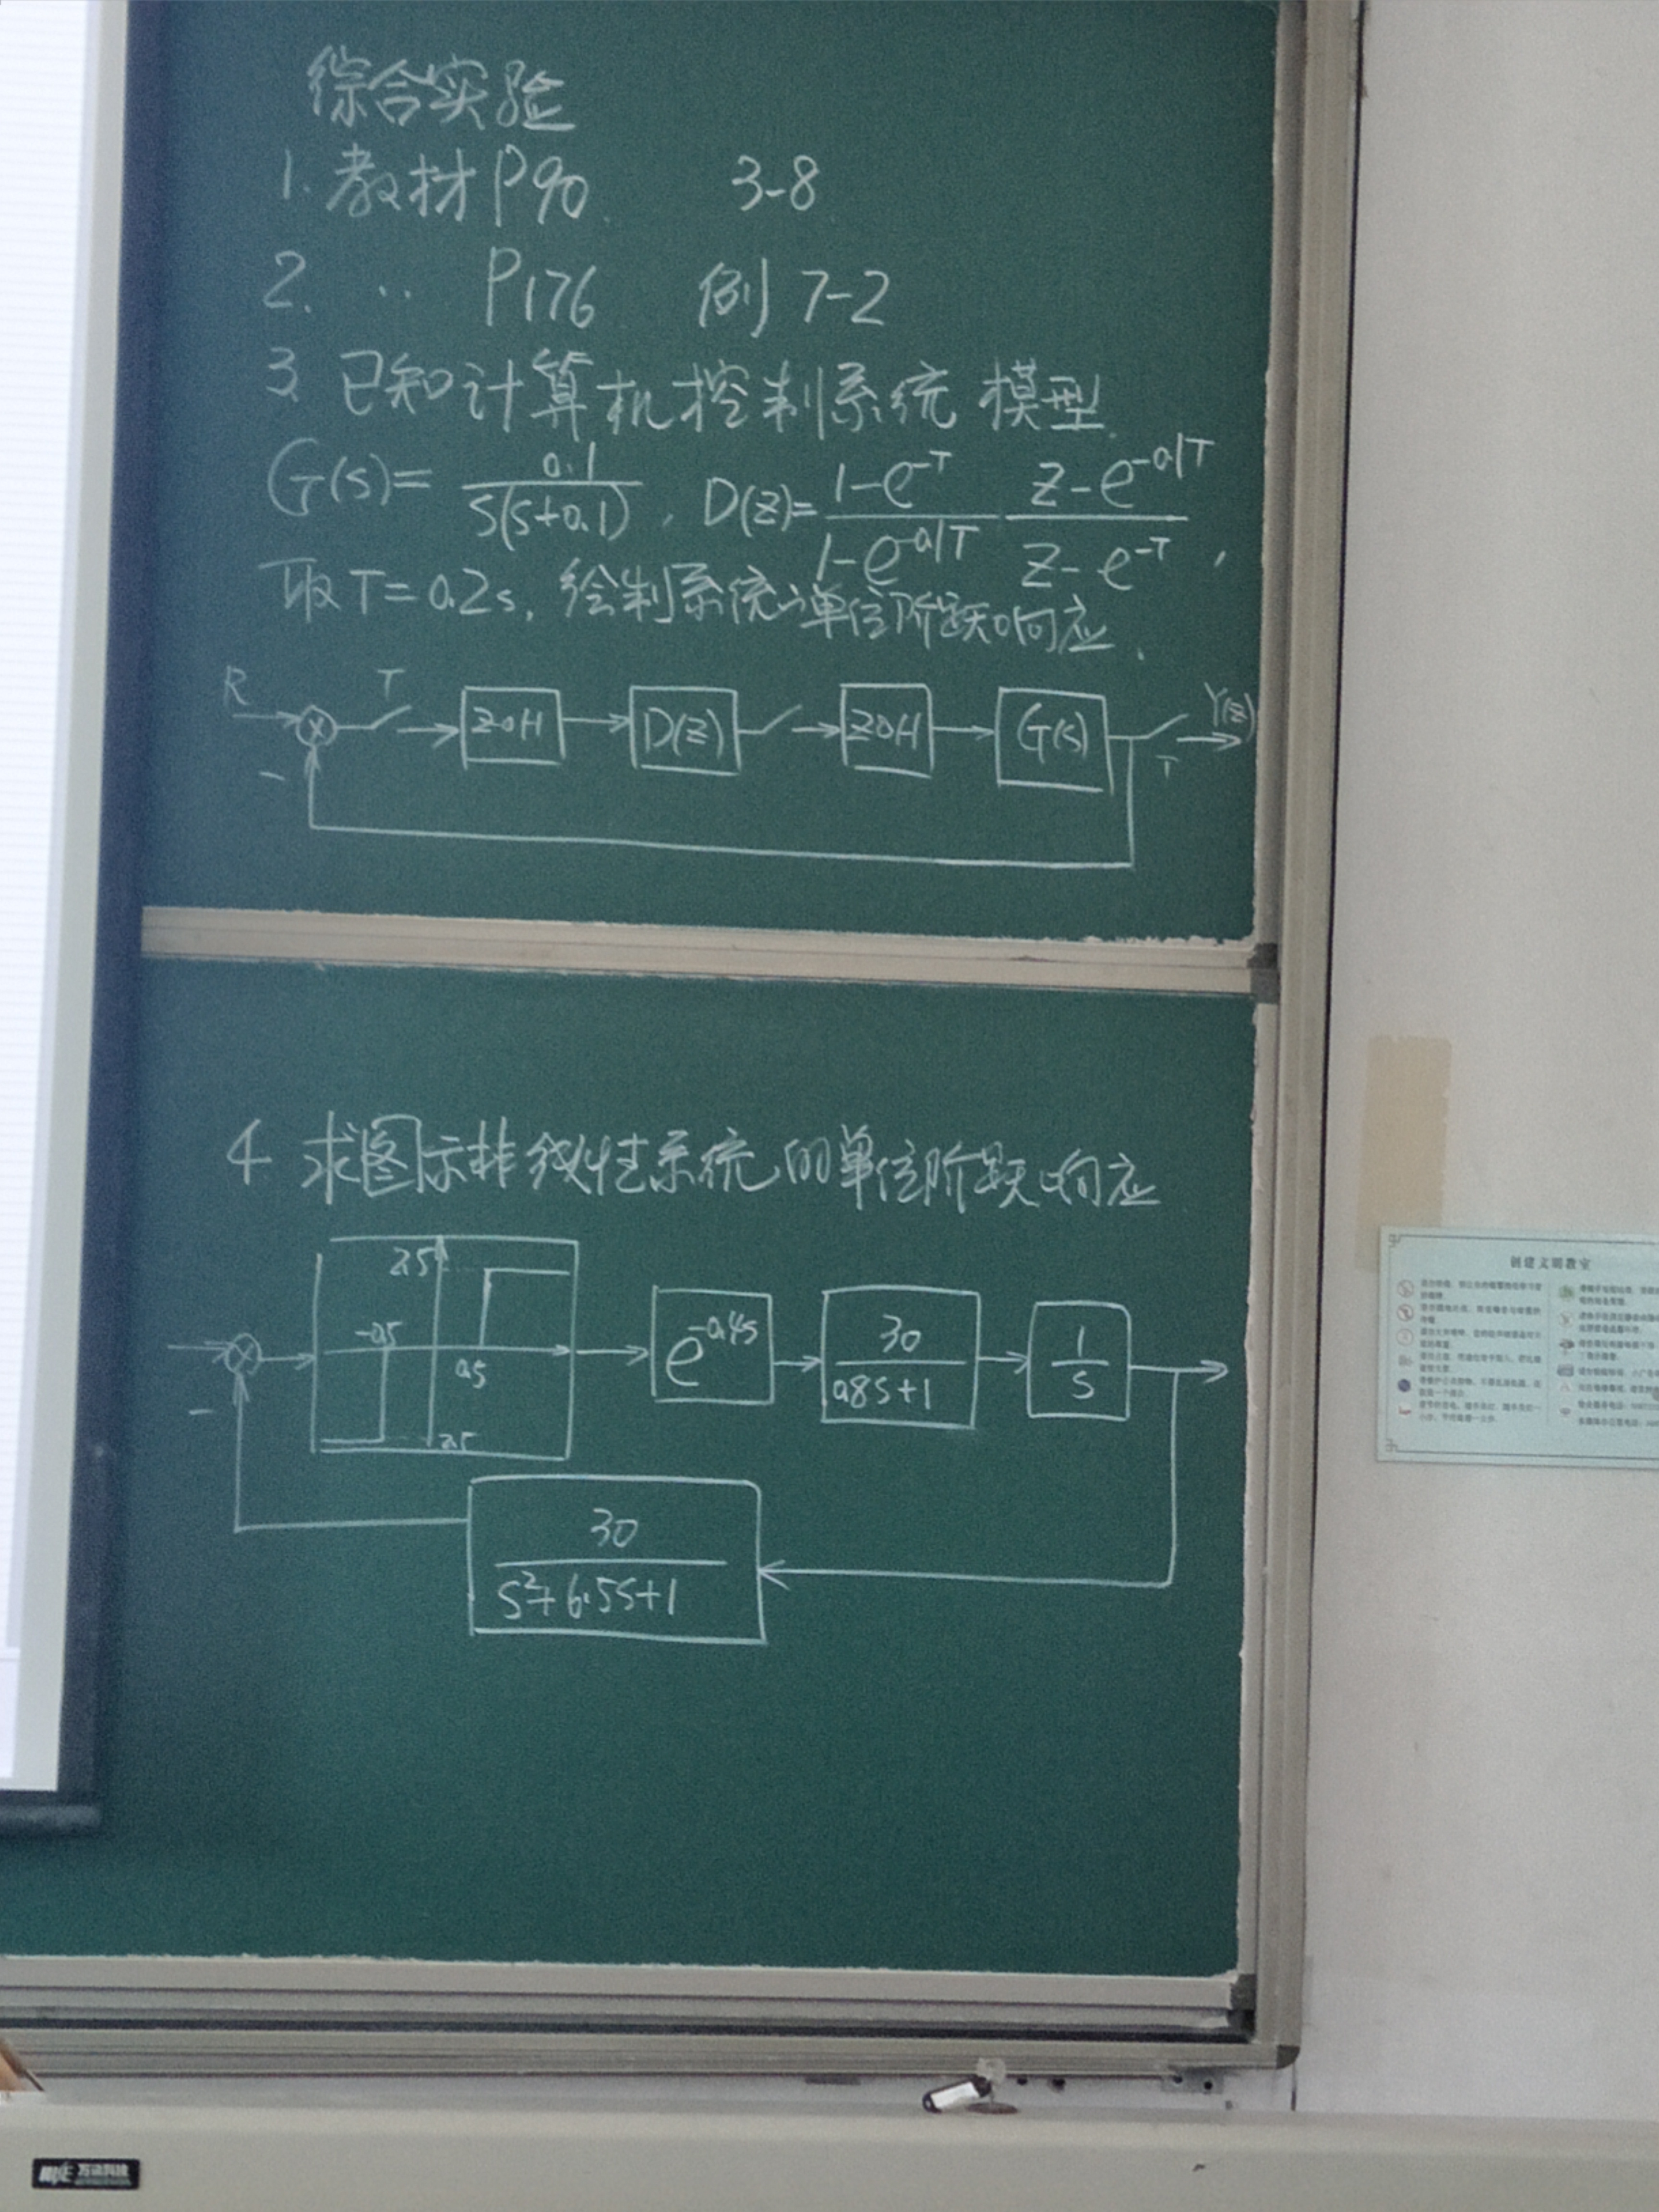 综合实验
1. 教材 P90. 3-8
2. .. P176 例 7-2
3. 已知计算机控制系统模型.
G(s)= 0.1/s(s+0.1), D(z)= 1-e^-T/1-e^-0.1T z-e^-0.1T/z-e^-T,
取T=0.2s, 绘制系统的单位阶跃响应.
R T ZOH D(z) ZOH G(s) T Y(z)
-
4. 求图示非线性系统的单位阶跃响应
2.5 -0.5 0.5 2.5 e^-0.4s 30/0.8s+1 1/s
-
30/s²+6.5s+1
创建文明教室
万诚科技